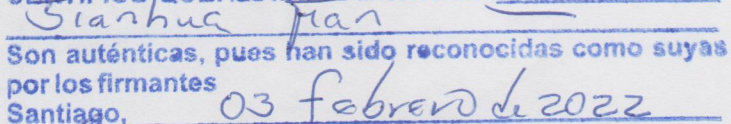 Sianhua Han
Son auténticas, pues han sido reconocidas como suyas
por los firmantes
Santiago, 03 febrero de 2022